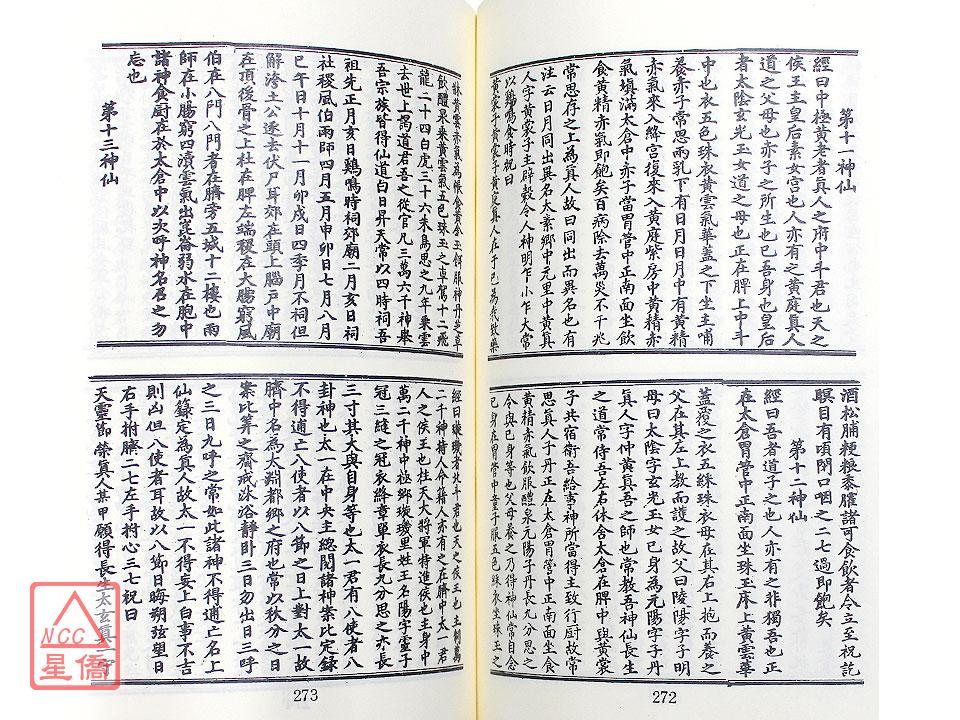 第十一神仙
經曰中極黃老者真人之府中斗君也天之
侯王主皇后素女宮也人亦有之黃庭真人
道之父母也赤子之所生也已吾身也皇后
者太陰玄光玉女道之母也正在脾上中斗
中也衣五色珠衣黃雲氣華蓋之下坐主哺
養赤子常思兩乳下有日月日月中有黃精
赤氣來入絳宮復來入黃庭紫房中黃精赤
氣填滿太倉中赤子當胃管中正南面坐飲
食黃精赤氣即飽矣百病除去萬災不干兆
常思存之上為真人故曰同出而異名也有
注云日月同出異名太素鄉中元里中黃真
人字黃裳子主辟穀令人神明乍小乍大常
以雞鳴食時祝曰
黃裳子黃裳子黃庭真人在于己為我致藥
酒松脯粳粮黍臛諸可食飲者令立至祝訖
瞑目有頃閉口咽之二七過即飽矣
第十二神仙
經曰吾者道子之也人亦有之非獨吾也正
在太倉胃管中正南面坐珠玉床上黃雲華
蓋覆之衣五綵珠衣母在其右上抱而養之
父在其左上教而護之故父曰陵陽字子明
母曰太陰字玄光玉女己身為元陽字子丹
真人字仲黃真吾之師也常教吾神仙長生
之道常侍吾左右休舍太倉在脾中與黃裳
子共宿衛吾給事神所當得主致行厨故常
思真人子丹正在太倉胃管中正南面坐食
黃精赤氣飲服醴泉元陽子丹長九分思之
令與己身等也父母養之乃得神仙常自念
己身在胃管中童子服五色綵衣坐珠玉之
272
牀黃雲赤氣為帳食黃金玉餌服神丹芝草
飲醴泉乘黃雲氣五色珠玉之車駕十二飛
龍二十四白虎三十六朱鳥思之九年乘雲
去世上謁道君吾之從官凡三萬六千神舉
吾宗族皆得仙道白日昇天常以四時祠吾
祖先正月亥日鷄鳴時祠郊廟二月亥日祠
社稷風伯雨師四月五月申卯日七月八月
巳午日十月十一月卯戌日四季月不祠但
解洿土公逐去伏尸耳郊在頭上腦戶中廟
在項後骨之上社在脾左端稷在大腸窮風
伯在八門八門者在臍旁五城十二樓也雨
師在小腸窮四瀆雲氣出崑崙弱水在胞中
諸神食厨在於太倉中以次呼神名召之勿
忘也
第十三神仙
經曰璇璣者北斗君也天之侯王也主制萬
二千神持人命籍人亦有之在臍中太一君
人之侯王也柱天大將軍特進侯也主身中
萬二千神中極鄉璇璣里姓王名陽字靈子
冠三縫之冠衣絳章單衣長九分思之亦長
三寸其大與自身等也太一君有八使者八
卦神也太一在中央主總閱諸神案比定錄
不得逋亡八使者以八節之日上對太一故
臍中名為太淵都鄉之府也常以秋分之日
案比算之齋戒沐浴靜卧三日勿出日三呼
之三日九呼之常如此諸神不得逋亡名上
仙錄定為真人故太一不得妄上白事不吉
則凶但八使者耳故以八節日晦朔弦望日
右手拊臍二七左手拊心三七祝曰
天靈節榮真人某甲願得長生太玄真一守
273
NCC
星僑